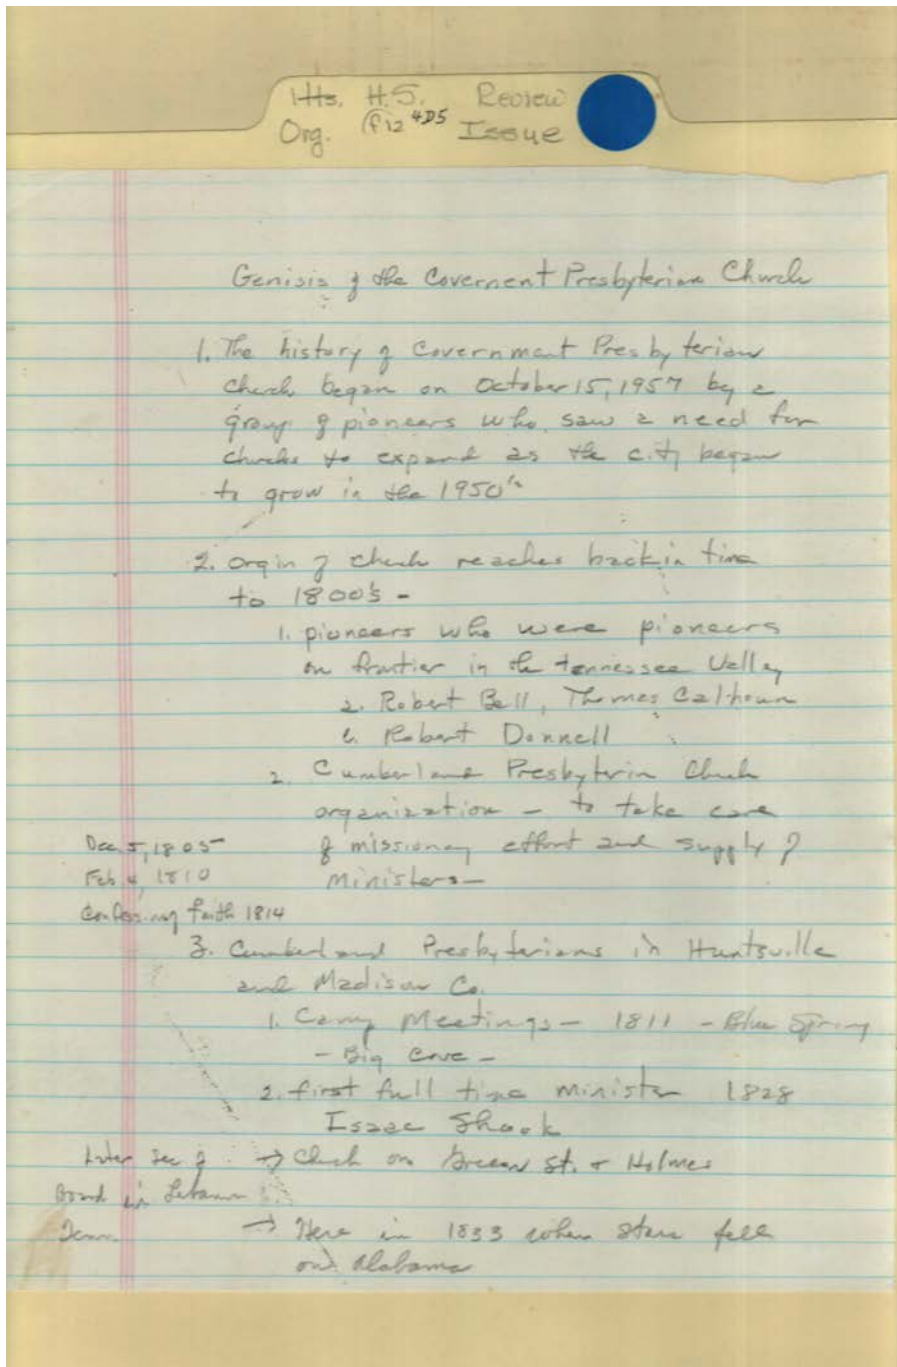 Hts. H.S. Review
Org. f12 4D5 Issue
Genisis of the Covernent Presbyterian Church
1. The history of Covernment Presbyterian
Church began on October 15, 1957 by a
group of pioneers who saw a need for
churchs to expand as the city began
to grow in the 1950's
2. Orgin of church reaches back in time
to 1800's -
1. pioneers who were pioneers
on frontier in the tennessee Valley
a. Robert Bell, Thomas Calhoun
c. Robert Donnell
2. Cumberland Presbyterin Church
organization - to take care
Dec 5, 1805 of missionary effort and supply of
Feb 4, 1810 Ministers -
Confessing faith 1814
3. Cumberland Presbyterians in Huntsville
and Madison Co.
1. Camp Meetings - 1811 - Blue Spring
- Big Cove -
2. first full time minister 1828
Isaac Shook
Later Sec of → Church on Green St. & Holmes
Board in Lebanon
Tenn. → Here in 1833 when stars fell
on Alabama